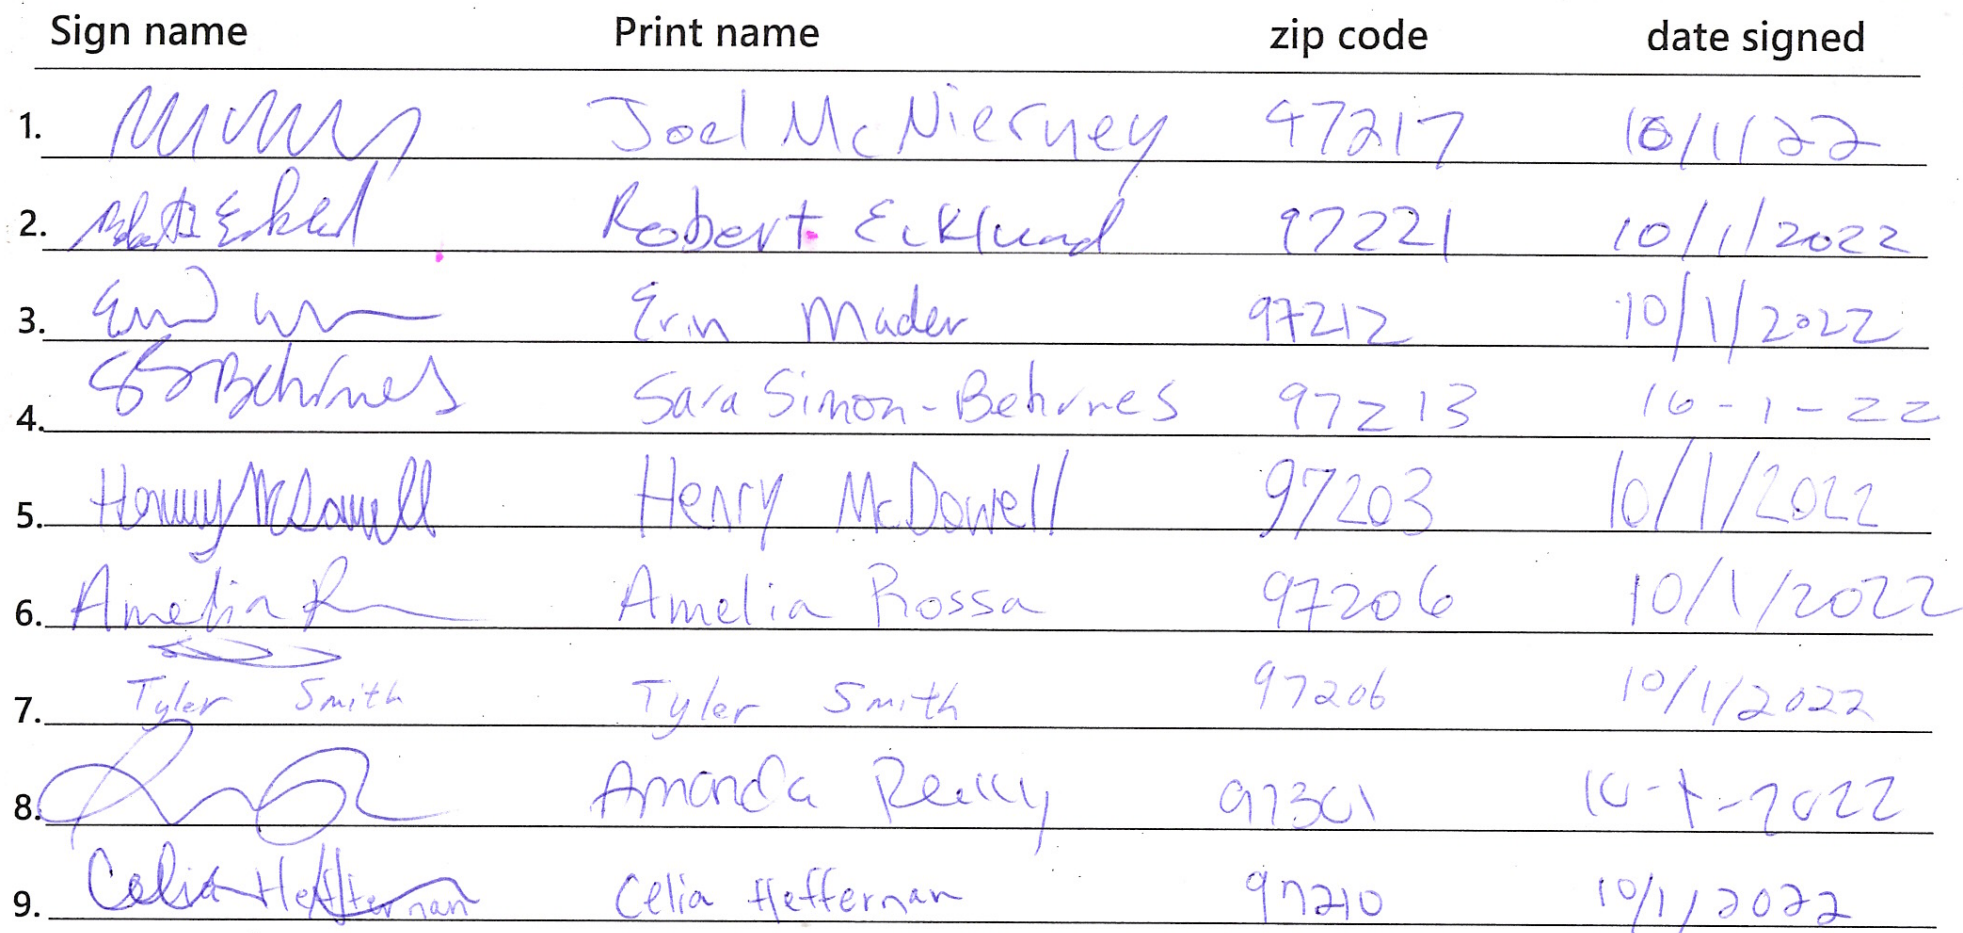 Sign name Print name zip code date signed
1. Joel McNierney 97217 10/1/22
2. Robert Ecklund 97221 10/1/2022
3. Erin Mader 97212 10/1/2022
4. SS Behrnes Sara Simon-Behrnes 97213 10-1-22
5. Henry McDowell Henry McDowell 97203 10/1/2022
6. Amelia R Amelia Rossa 97206 10/1/2022
7. Tyler Smith Tyler Smith 97206 10/1/2022
8. Amanda Reilly 97301 10-1-2022
9. Celia Heffernan Celia Heffernan 97210 10/1/2022